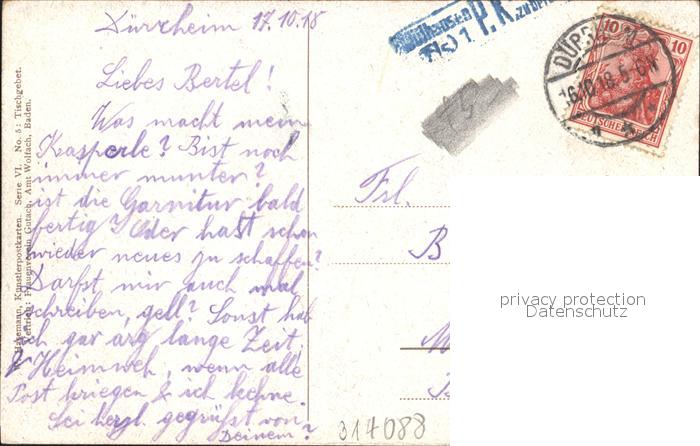 Dürrheim 17.10.18
Liebes Bertel!
Was macht mein
Kasperle? Bist noch
immer munter?
ist die Garnitur bald
fertig? Oder hast schon
wieder neues zu schaffen?
Darfst mir auch mal
schreiben, gell? Sonst hab
ich gar arg lange Zeit
Heimweh, wenn alle
Post kriegen & ich keine.
Sei herzl. gegrüßt von
Deinem?
Frl.
B
314088
P.K.
10 10
DEUTSCHES REICH
16.10.18.5-6N
Hasemann, Künstlerpostkarten. Serie VI. No. 5: Tischgebet.
Vertrieb: Frauenverein Gutach, Amt Wolfach, Baden.
privacy protection
Datenschutz